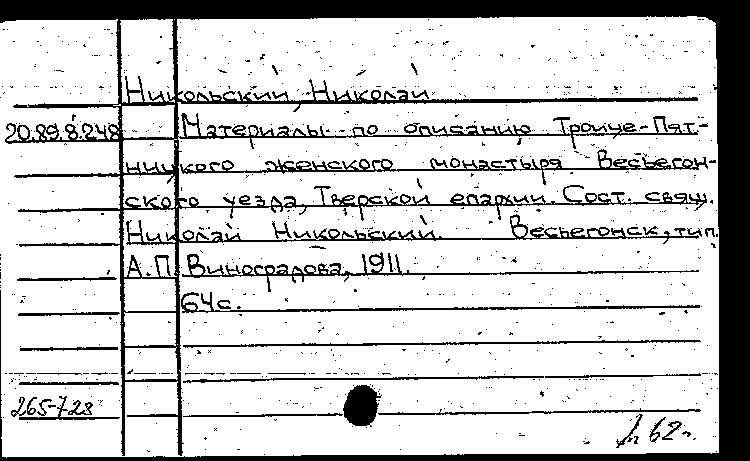 Никольский, Николай
20.89.8.248 Материалы по описанию Троице-Пят-
ницкого женского монастыря Весьегон-
ского уезда, Тверской епархии. Сост. свящ.
Николай Никольский. Весьегонск, тип.
А.П. Виноградова, 1911.
64 с.
265-728
62г.